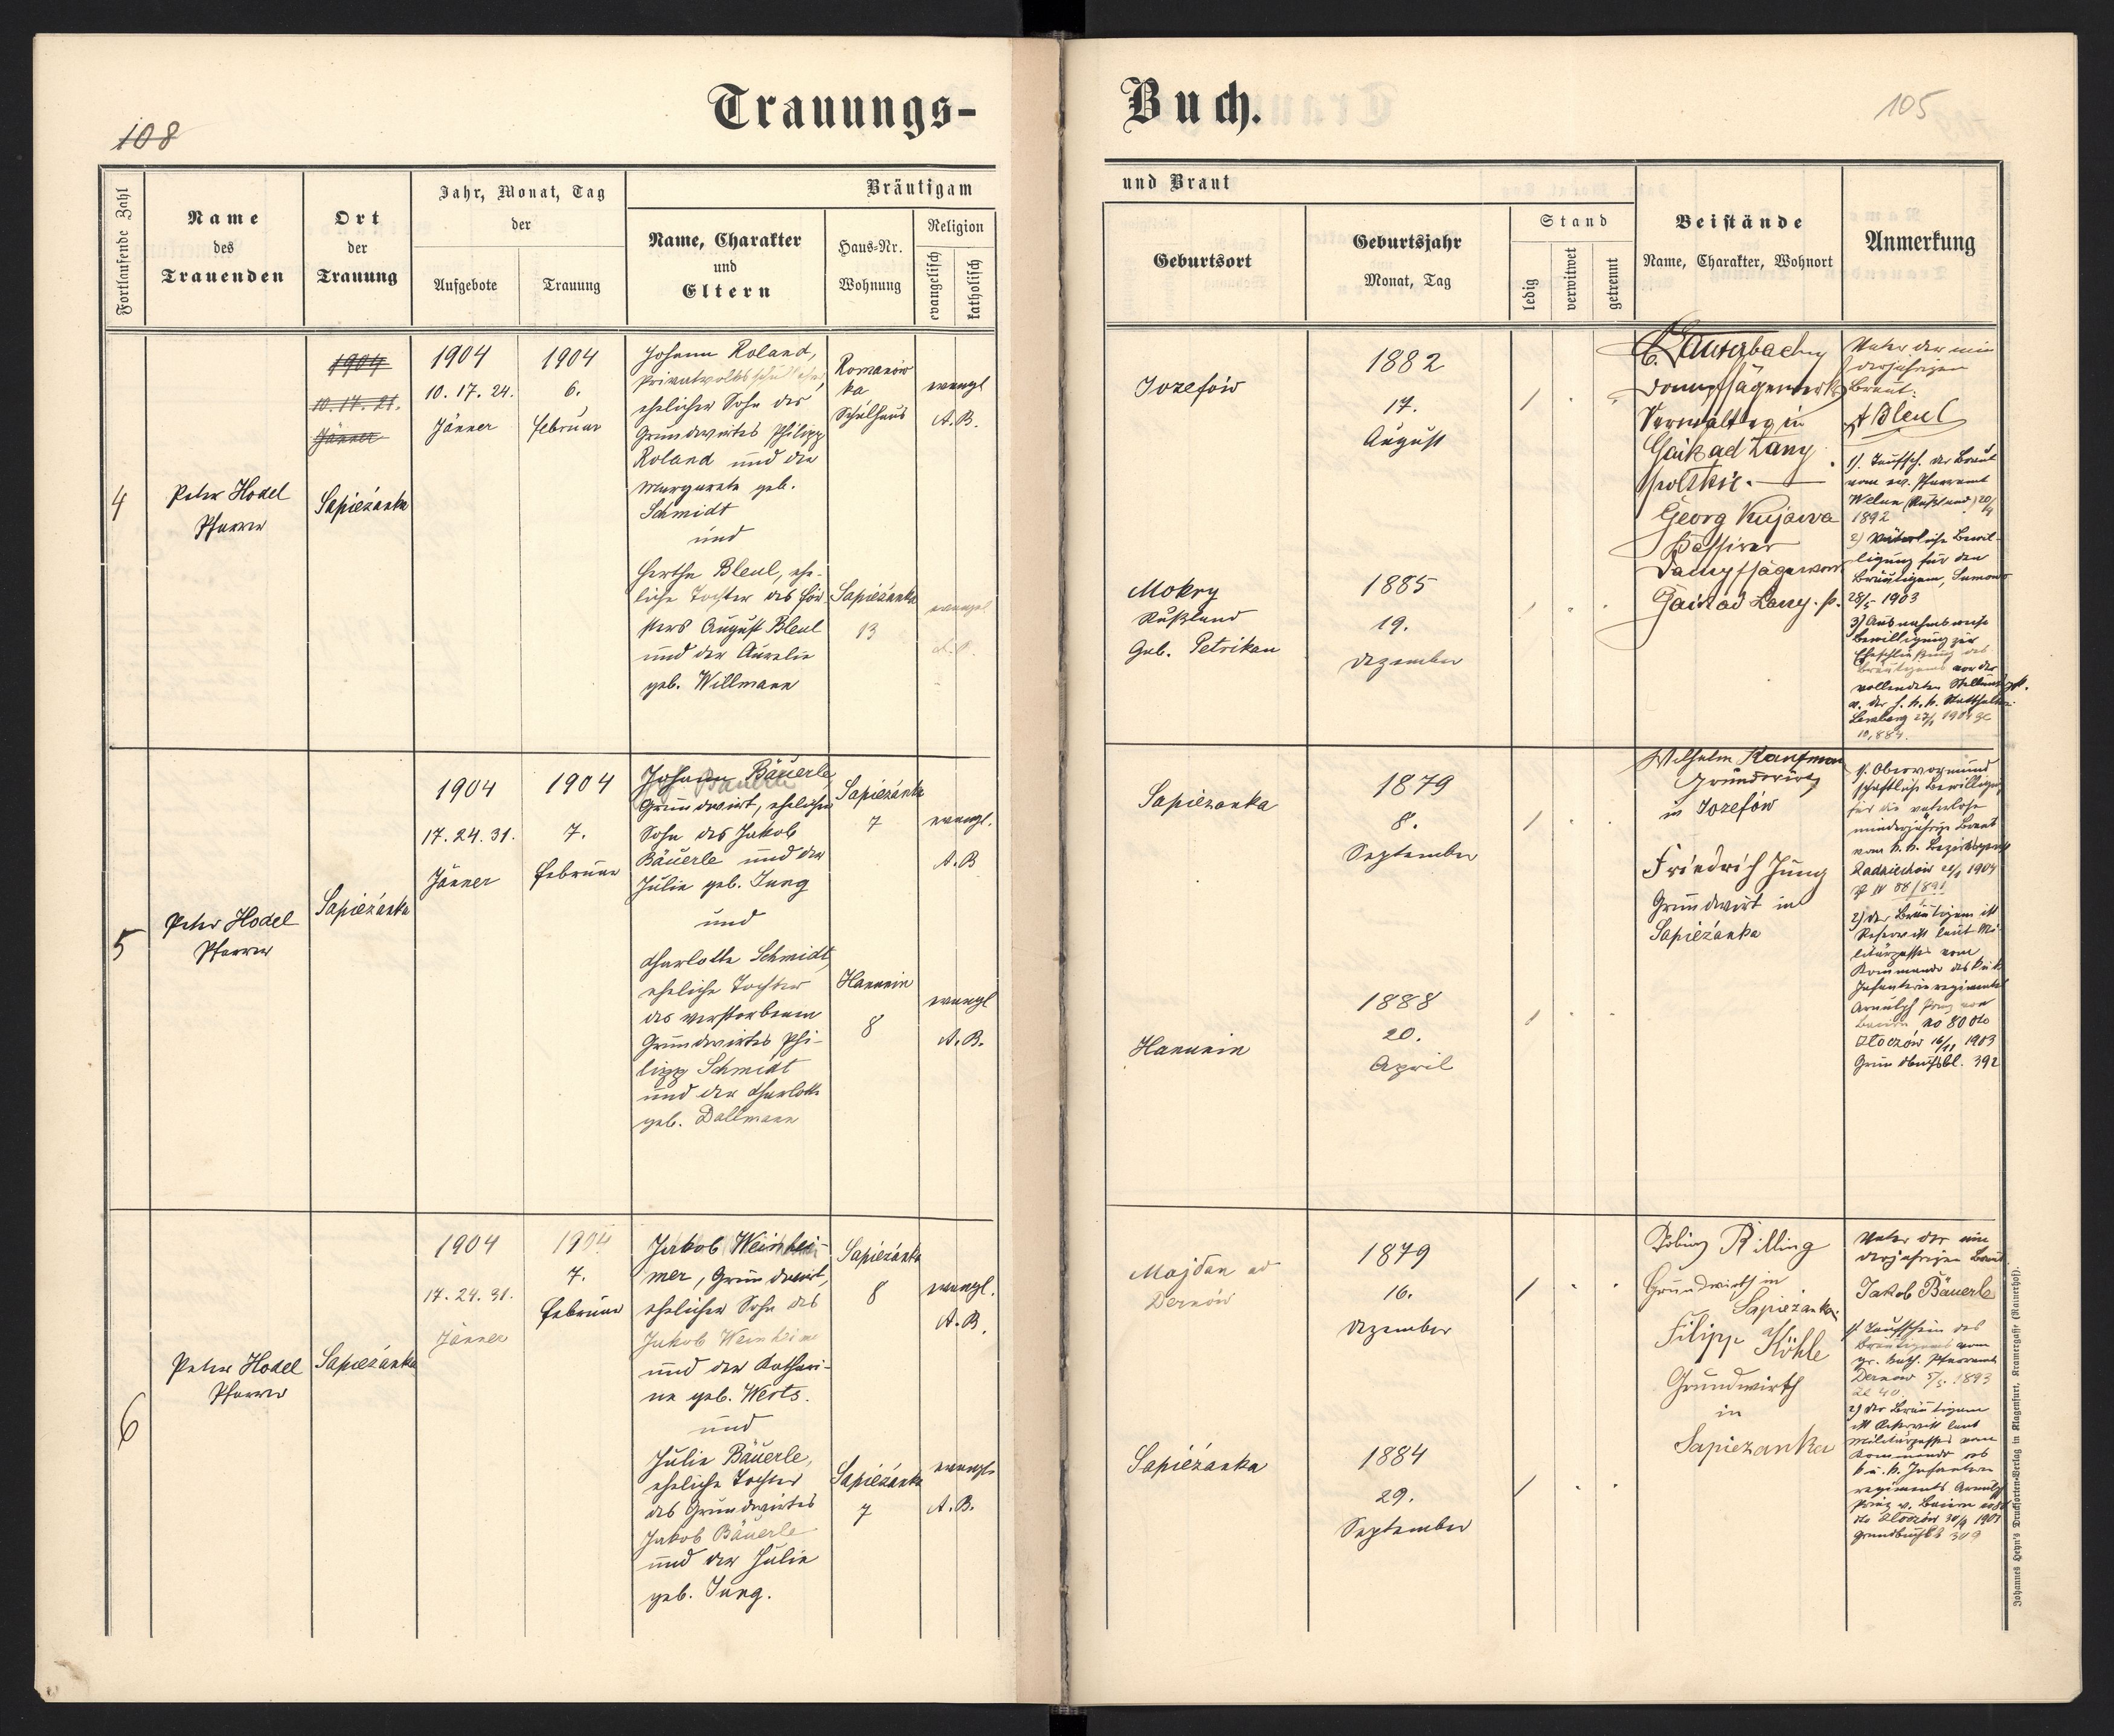 108
Trauungs-
Fortlaufende Zahl
Name
des
Trauenden
Ort
der
Trauung
Jahr, Monat, Tag
der
Aufgebote
Trauung
Bräutigam
Name, Charakter
und
Eltern
Haus-Nr.
Wohnung
Religion
evangelisch
katholisch
4
Peter Hodel
Pfarrer
1904
10. 17. 21.
Jänner
Sapieżanka
1904
10. 17. 24.
Jänner
1904
6.
Februar
Johann Roland,
Privatvolksschullehrer,
ehelicher Sohn des
Grundwirtes Philipp
Roland und der
Margareta geb.
Schmidt
und
Hertha Bleul, ehe-
liche Tochter des För-
sters August Bleul
und der Aurelie
geb. Willmann
Romanów
ka
Schulhaus
Sapieżanka
13
evangl
A. B.
evangel
A. B.
5
Peter Hodel
Pfarrer
Sapieżanka
1904
17. 24. 31.
Jänner
1904
7.
Februar
Johann Bäuerle,
Grundwirt, ehelicher
Sohn des Jakob
Bäuerle und der
Julie geb. Jung
und
Charlotte Schmidt,
eheliche Tochter
des verstorbenen
Grundwirtes Phi-
lipp Schmidt
und der Charlotte
geb. Dallmann
Sapieżanka
7
Hanunin
8
evangl.
A. B
evangl
A. B.
6
Peter Hodel
Pfarrer
Sapieżanka
1904
17. 24. 31.
Jänner
1904
7.
Februar
Jakob Weinhei-
mer, Grundwirt,
ehelicher Sohn des
Jakob Weinheimer
und der Kathari-
na geb. Werts.
und
Julie Bäuerle,
eheliche Tochter
des Grundwirtes
Jakob Bäuerle
und der Julie
geb. Jung.
Sapieżanka
8
Sapieżanka
7
evangl.
A. B.
evangl.
A. B.
Buch.
105
und Braut
Geburtsort
Geburtsjahr
Monat, Tag
Stand
ledig
verwitwet
getrennt
Beistände
Name, Charakter, Wohnort
Anmerkung
Jozefów
1882
17.
August
Mokry
Rußland
Gub. Petrikau
1885
19.
Dezember
Dampfsägewerks
Verwalter in
Gaik ad Lany
polskie.
Georg Kujawa
Dampfsägewerk
Gaik ad Lany. p.
Vater der min
derjährigen
Braut:
A Bleul
1). Taufsch. der Braut
vom ev. Pfarramt
Welun (Rußland) 20/4
1892
2) Väterliche Bewil-
ligung für den
Bräutigam,
28/5 1903
3) Ausnahmsweise
Bewilligung zur
Eheschließung des
Bräutigams vor der
vollendeten Stellungspfl.
v. der h. k. k. Statthalterei
Lemberg 27/1 1904 Zl
10,884.
Sapiezanka
1879
8.
September
Hanunin
1888
20.
April
Wilhelm Kaufman
Grundwirt
in Jozefów
Friedrich Jung
Grundwirt in
Sapieżanka
1). Obervormund
schaftliche Bewilligung
für die vaterlose
minderjährige Braut
vom k. k. Bezirksgericht
Radziechów 1904
2) der Bräutigam ist
Reservist laut Mi-
litärpasses vom
Kommando des k u k
Infanterieregiments
Arnulph Prinz von
Baiern No 80 dto
Złoczów 16/11 1903
Grundbuchsbl. 392
Majdan ad
Dernów
1879
16.
Dezember
Sapieżanka
1884
29.
September
Tobias Rilling
Grundwirth in
Sapiezanka
Filipp Köhle
Grundwirth
in
Sapiezanka
Vater der min
derjährigen Braut
Jakob Bäuerle
1) Taufschein des
Bräutigams vom
gr. kath. Pfarramt
Dernów 5/5 1893
Zl 40.
2) der Bräutigam
ist Reservist laut
Militärpasses vom
Kommando des
k u. k. Infanterie
regiments Arnulph
Prinz v. Baiern No 80
dto Złoczów 30/9 1901
Grundbuchsbl 309
Johannes Heyn's Drucksorten-Verlag in Klagenfurt, Kramergasse (Rainerhof).